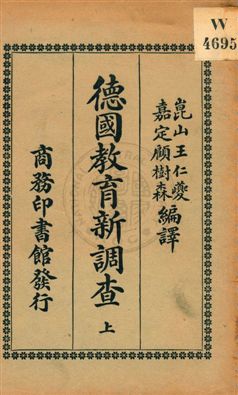 W
4695
崑山王仁夔
嘉定顧樹森
編譯
德國教育新調查 上
商務印書館發行